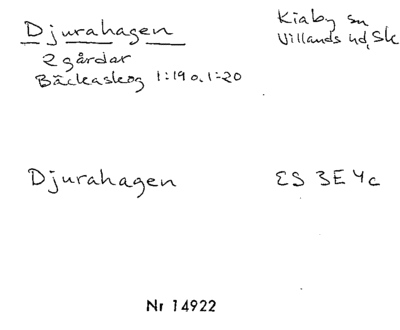 Djurahagen
Kiaby sn
Villands hd, Sk
2 gårdar
Bäckaskog 1:19 o. 1:20
Djurahagen
ES 3E 4c
Nr 14922